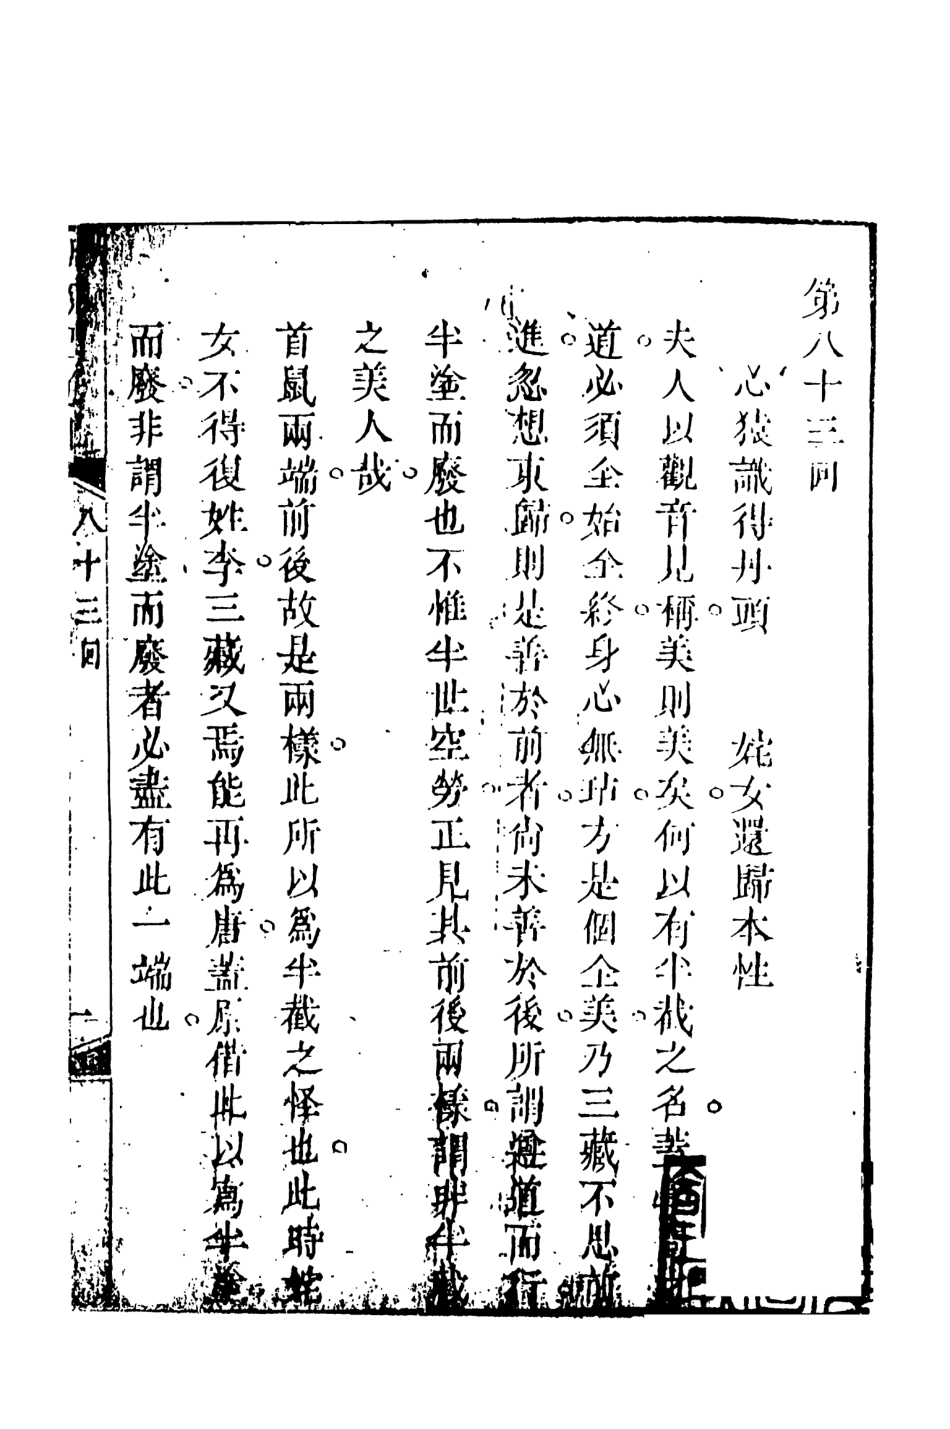 第八十三回
心猿識得丹頭　姹女還歸本性
夫人以觀音見稱美則美矣何以有半截之名蓋
道必須全始全終身心無玷方是個全美乃三藏不思前
進忽想東歸則是善於前者尚未善於後所謂遵道而行
半塗而廢也不惟半世空勞正見其前後兩樣謂非半截
之美人哉
首鼠兩端前後故是兩樣此所以為半截之怪也此時姹
女不得復姓李三藏又焉能再為唐蓋原借此以寫半塗
而廢非謂半塗而廢者必盡有此一端也
八十三回
一